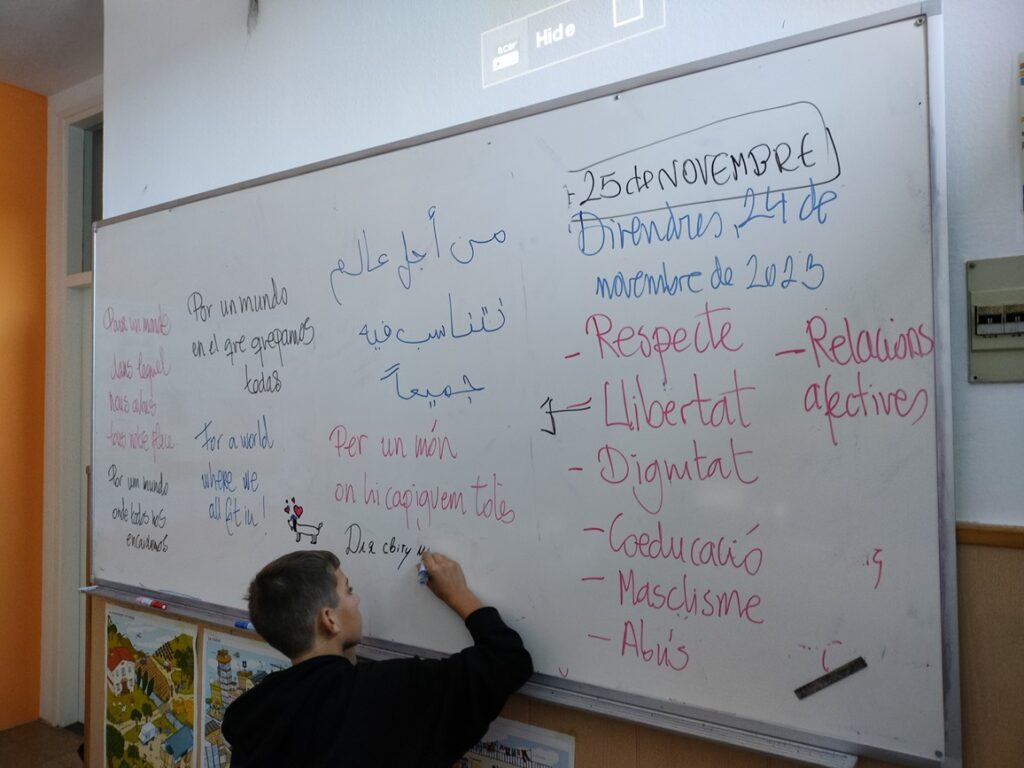 Hide
25 de NOVEMBRE
Divendres, 24 de
novembre de 2023
- Respecte
- Llibertat
- Dignitat
- Coeducació
- Masclisme
- Abús
- Relacions
afectives
من أجل عالم
نتناسب فيه
جميعاً
Per un món
on hi capiguem totis
Для світу
Por un mundo
en el qre qrepamos
todas
For a world
where we
all fit in!
Pour un monde
dans lequel
nous
Por um mundo
onde todos nos
encaixamos